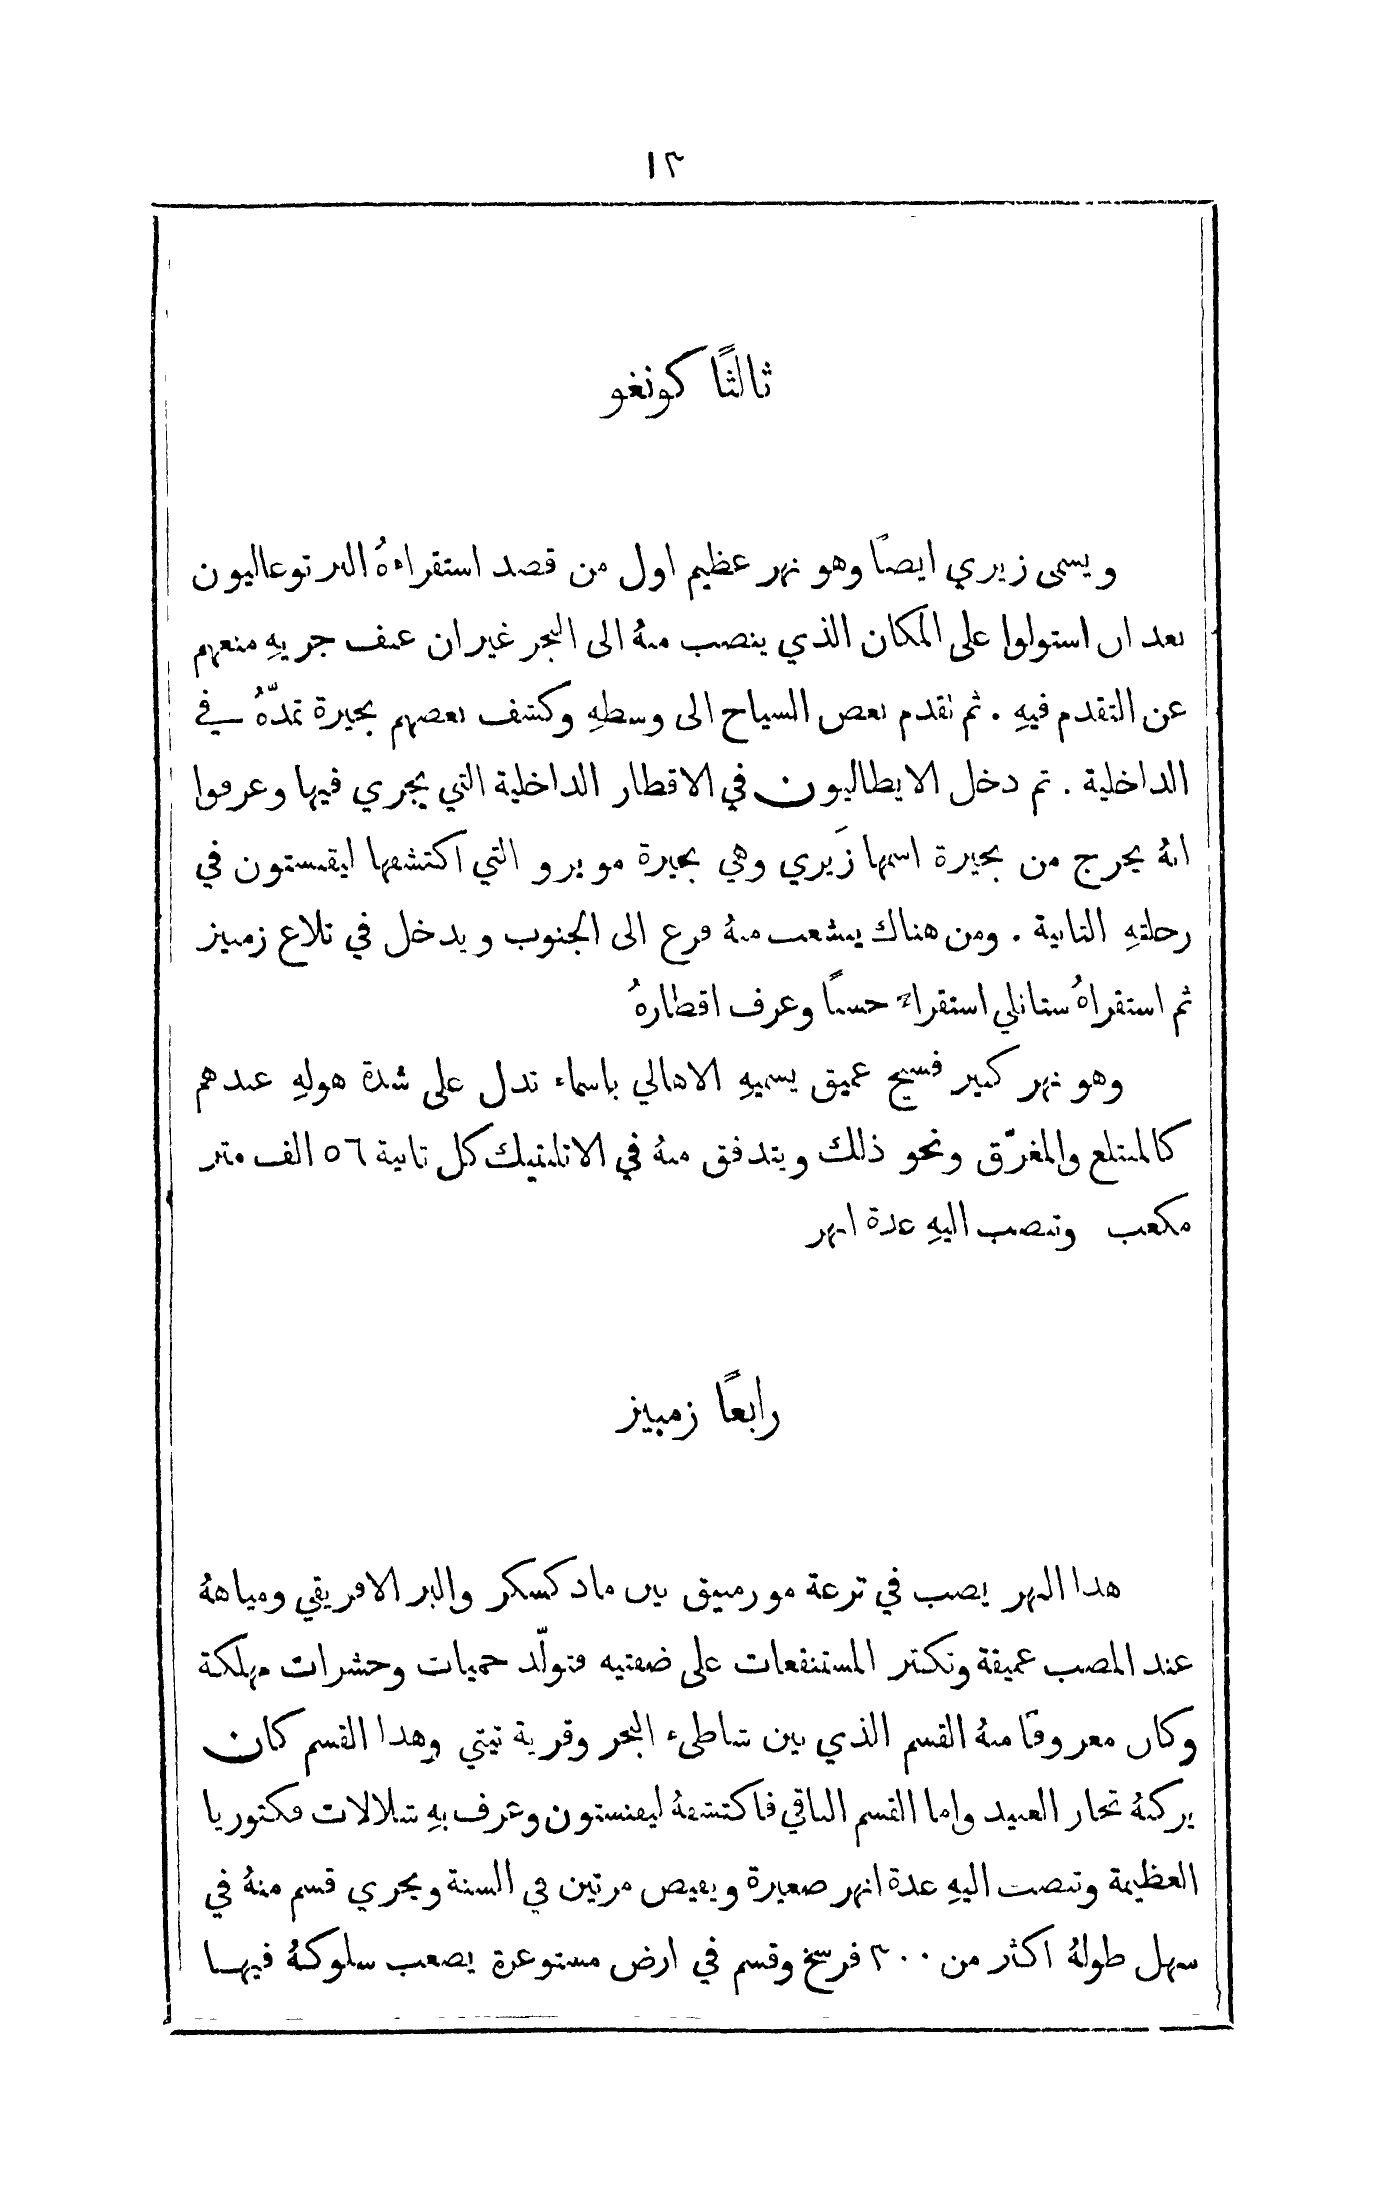 ١٣
ثالثًا كونغو
ويسمى زيري ايضًا وهو نهر عظيم اول من قصد استقراءهُ البرتوغاليون
بعد ان استولوا على المكان الذي ينصب منهُ الى البحر غير ان عنف جريهِ منعهم
عن التقدم فيهِ . ثم تقدم بعض السياح الى وسطهِ وكشف بعضهم بحيرة تمدّهُ في
الداخلية . ثم دخل الايطاليون في الاقطار الداخلية التي يجري فيها وعرفوا
انهُ يخرج من بحيرة اسمها زَيري وهي بحيرة مويرو التي اكتشفها ليفنستون في
رحلتهِ الثانية . ومن هناك ينشعب منهُ فرع الى الجنوب ويدخل في تلاع زمبيز
ثم استقراهُ ستانلي استقراءً حسنًا وعرف اقطارهُ
وهو نهر كبير فسيح عميق يسميهِ الاهالي باسماء تدل على شدة هولهِ عندهم
كالمبتلع والمغرّق ونحو ذلك ويتدفق منهُ في الاتلنتيك كل ثانية ٥٦ الف متر
مكعب وتنصب اليهِ عدة انهر
رابعًا زمبيز
هذا النهر يصب في ترعة موزمبيق بين مادكسكر والبر الافريقي ومياههُ
عند المصب عميقة وتكثر المستنقعات على ضفتيه فتولّد حميات وحشرات مهلكة
وكان معروفًا منهُ القسم الذي بين شاطىء البحر وقرية تيتي وهذا القسم كان
يركبهُ تجار العبيد واما القسم الباقي فاكتشفهُ ليفنستون وعرف بهِ شلالات فكتوريا
العظيمة وتنصب اليهِ عدة انهر صغيرة ويفيض مرتين في السنة ويجري قسم منهُ في
سهل طولهُ اكثر من ٣٠٠ فرسخ وقسم في ارض مستوعرة يصعب سلوكهُ فيها